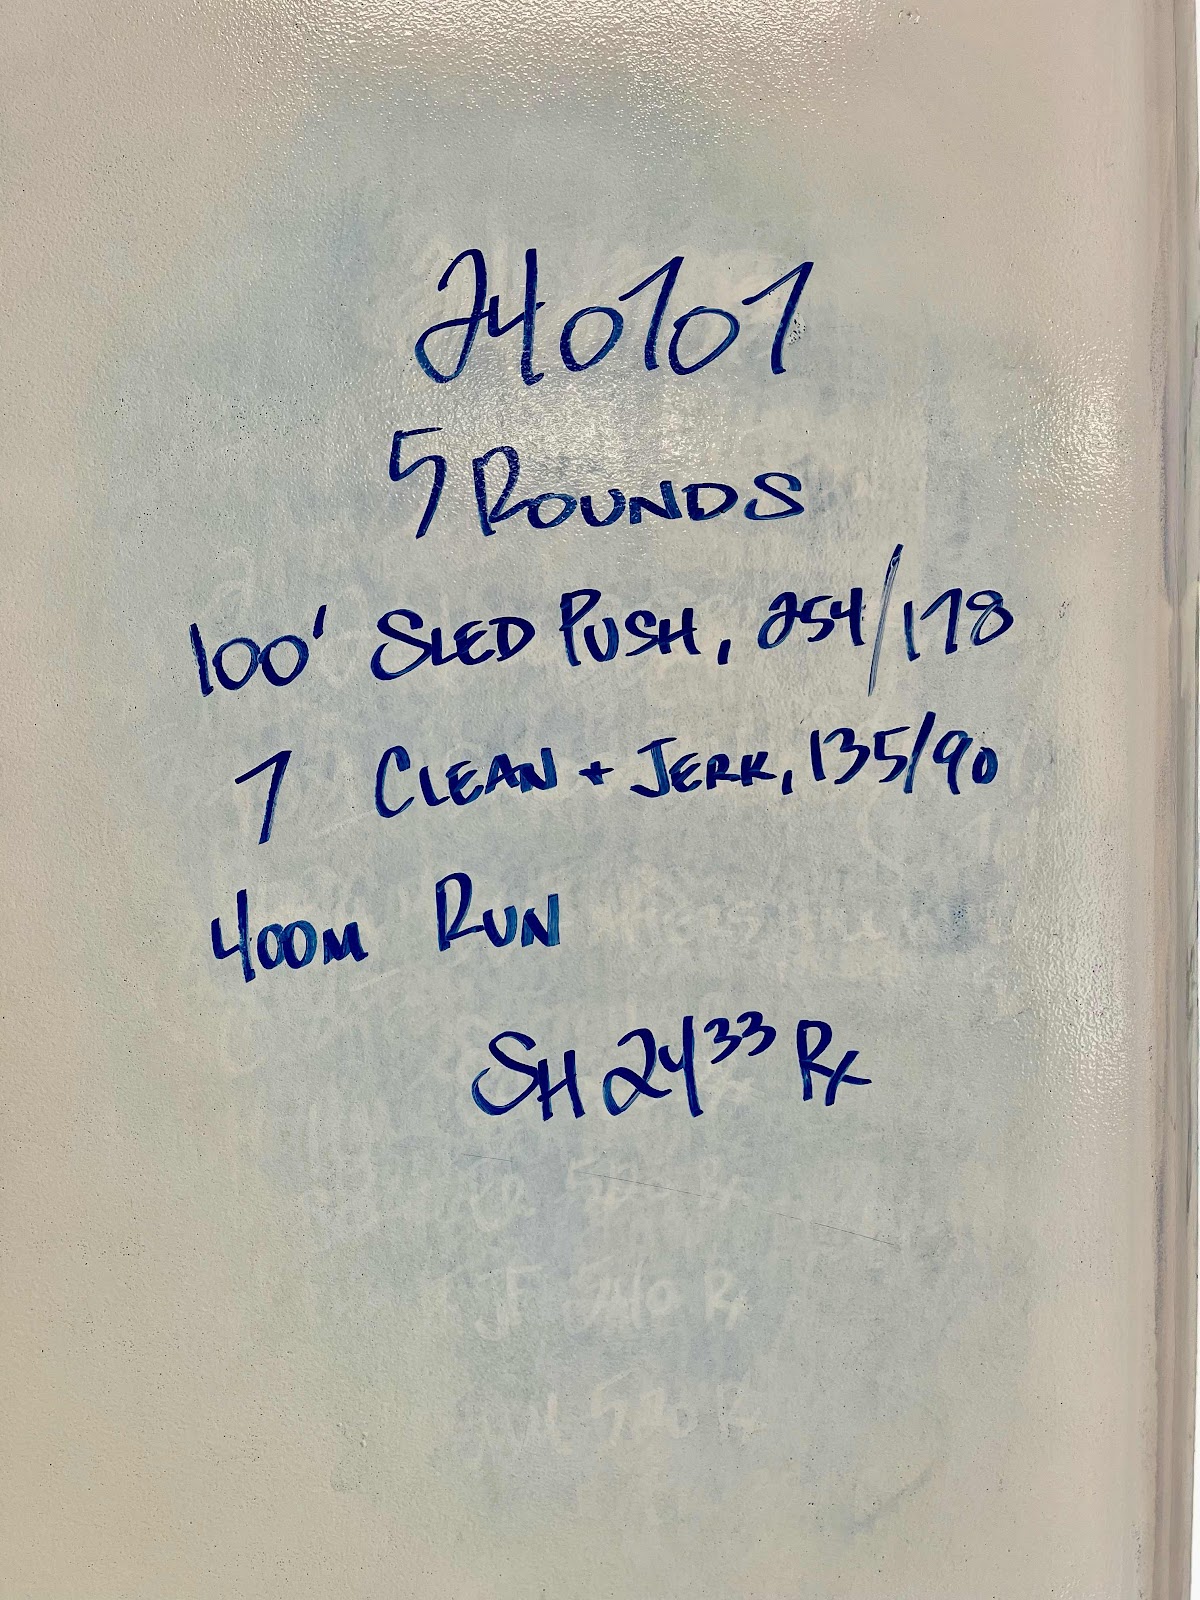 240707
5 ROUNDS
100' SLED PUSH, 254/178
7 CLEAN + JERK, 135/90
400M RUN
SH 24³³ Rx